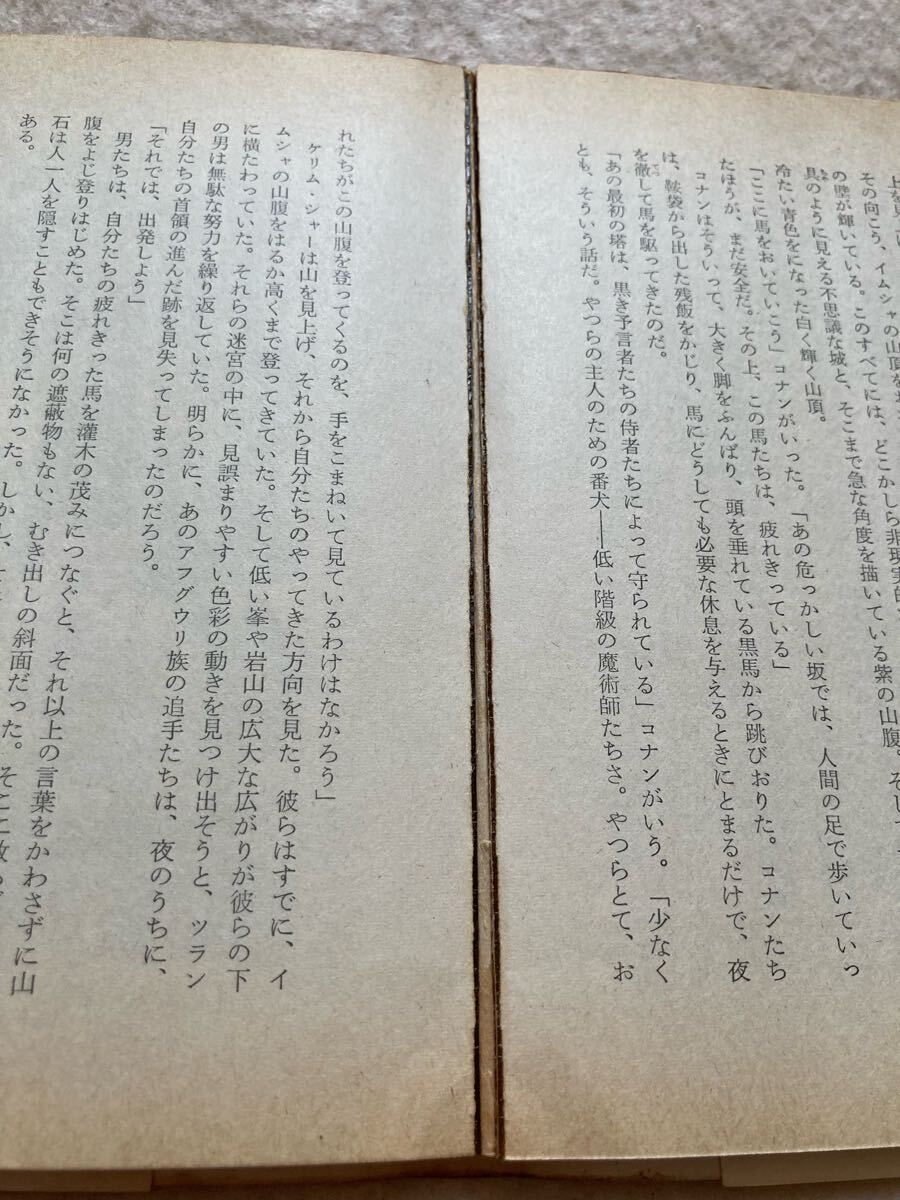 その向こう、イムシャの山頂
の壁が輝いている。このすべてには、どこかしら非現実的
具のように見える不思議な城と、そこまで急な角度を描いている紫の山腹。そして
冷たい青色をになった白く輝く山頂。
「ここに馬をおいていこう」コナンがいった。「あの危っかしい坂では、人間の足で歩いていっ
たほうが、まだ安全だ。その上、この馬たちは、疲れきっている」
コナンはそういって、大きく脚をふんばり、頭を垂れている黒馬から跳びおりた。コナンたち
は、鞍袋から出した残飯をかじり、馬にどうしても必要な休息を与えるときにとまるだけで、夜
を徹して馬を駆ってきたのだ。
「あの最初の塔は、黒き予言者たちの侍者たちによって守られている」コナンがいう。「少なく
とも、そういう話だ。やつらの主人のための番犬——低い階級の魔術師たちさ。やつらとて、お
れたちがこの山腹を登ってくるのを、手をこまねいて見ているわけはなかろう」
ケリム・シャーは山を見上げ、それから自分たちのやってきた方向を見た。彼らはすでに、イ
ムシャの山腹をはるか高くまで登ってきていた。そして低い峯や岩山の広大な広がりが彼らの下
に横たわっていた。それらの迷宮の中に、見誤まりやすい色彩の動きを見つけ出そうと、ツラン
の男は無駄な努力を繰り返していた。明らかに、あのアフグウリ族の追手たちは、夜のうちに、
自分たちの首領の進んだ跡を見失ってしまったのだろう。
「それでは、出発しよう」
男たちは、自分たちの疲れきった馬を灌木の茂みにつなぐと、それ以上の言葉をかわさずに山
腹をよじ登りはじめた。そこは何の遮蔽物もない、むき出しの斜面だった。そこに
石は人一人を隠すこともできそうになかった。しかし、
ある。